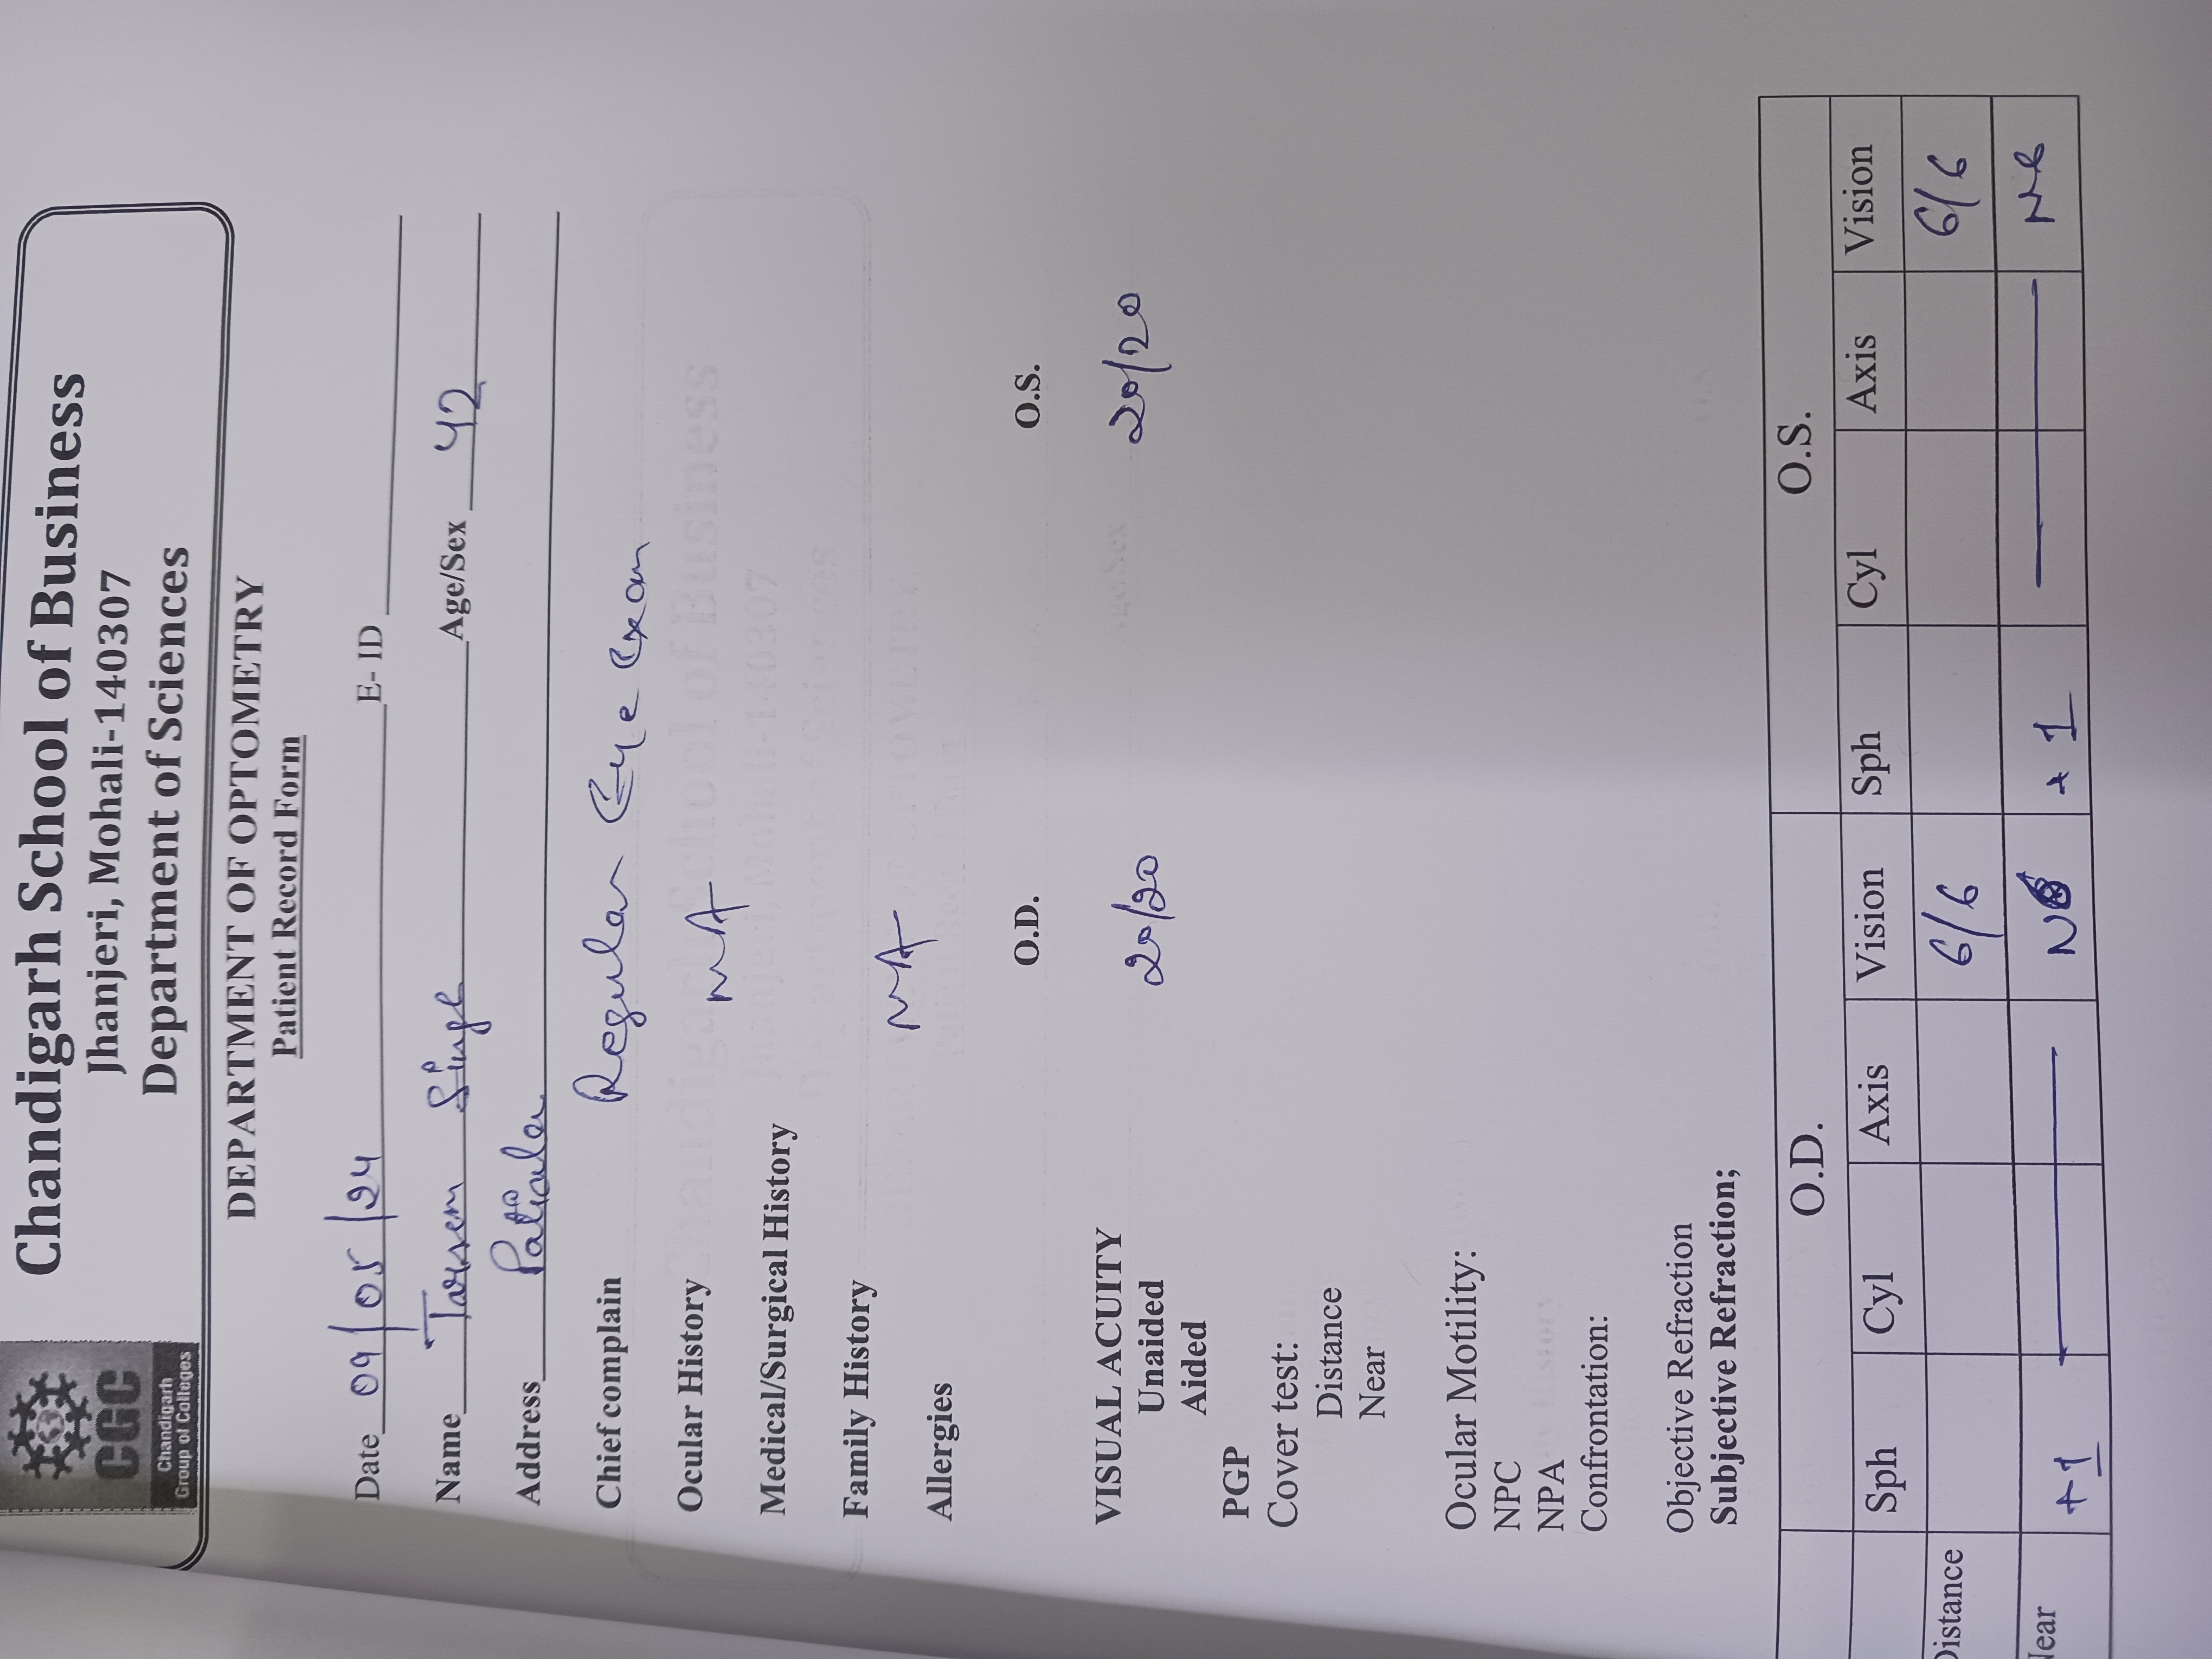 CGC
Chandigarh
Group of Colleges
Chandigarh School of Business
Jhanjeri, Mohali-140307
Department of Sciences
DEPARTMENT OF OPTOMETRY
Patient Record Form
Date 09/05/24 E- ID
Name Tarsem Singh Age/Sex 42
Address Patiala
Chief complain Regular Eye Exam
Ocular History NA
Medical/Surgical History
Family History NA
Allergies
O.D. O.S.
VISUAL ACUITY
Unaided 20/20 20/20
Aided
PGP
Cover test:
Distance
Near
Ocular Motility:
NPC
NPA
Confrontation:
Objective Refraction
Subjective Refraction;
O.D. O.S.
Sph Cyl Axis Vision Sph Cyl Axis Vision
Distance 6/6 6/6
Near +1 — N6 +1 — N6